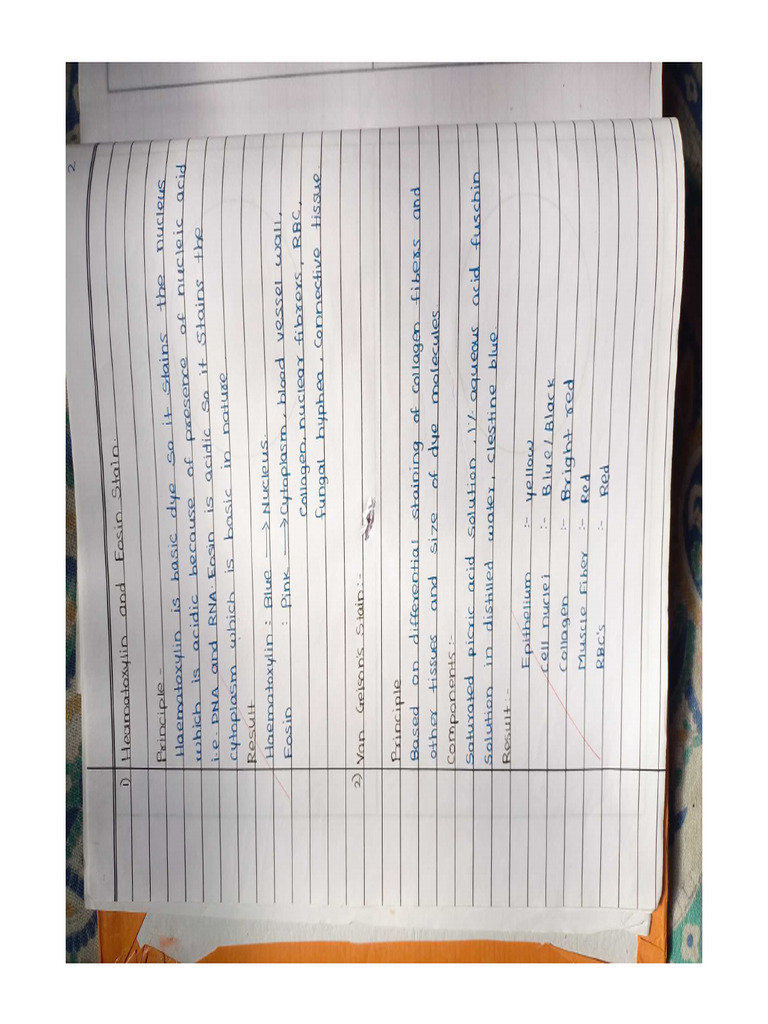 2
1) Heamatoxylin and Eosin Stain.
Principle -
Haematoxylin is basic dye so it stains the nucleus
which is acidic because of presence of nucleic acid
i.e. DNA and RNA. Eosin is acidic so it stains the
cytoplasm which is basic in nature
Result
Haematoxylin : Blue → Nucleus.
Eosin : Pink → Cytoplasm, blood vessel wall,
Collagen, nuclear fibrers, RBC,
fungal hyphea, Connective tissue.
2) Van Geison's Stain:-
Principle
Based on differential staining of collagen fibers and
other tissues and size of dye molecules.
Components :-
Saturated picric acid solution, 1% aqueous acid fuschin
Solution in distilled water, clestine blue.
Result:-
Epithelium :- yellow
Cell nuclei :- Blue/Black
Collagen :- Bright red
Muscle Fiber :- Red
RBC's :- Red